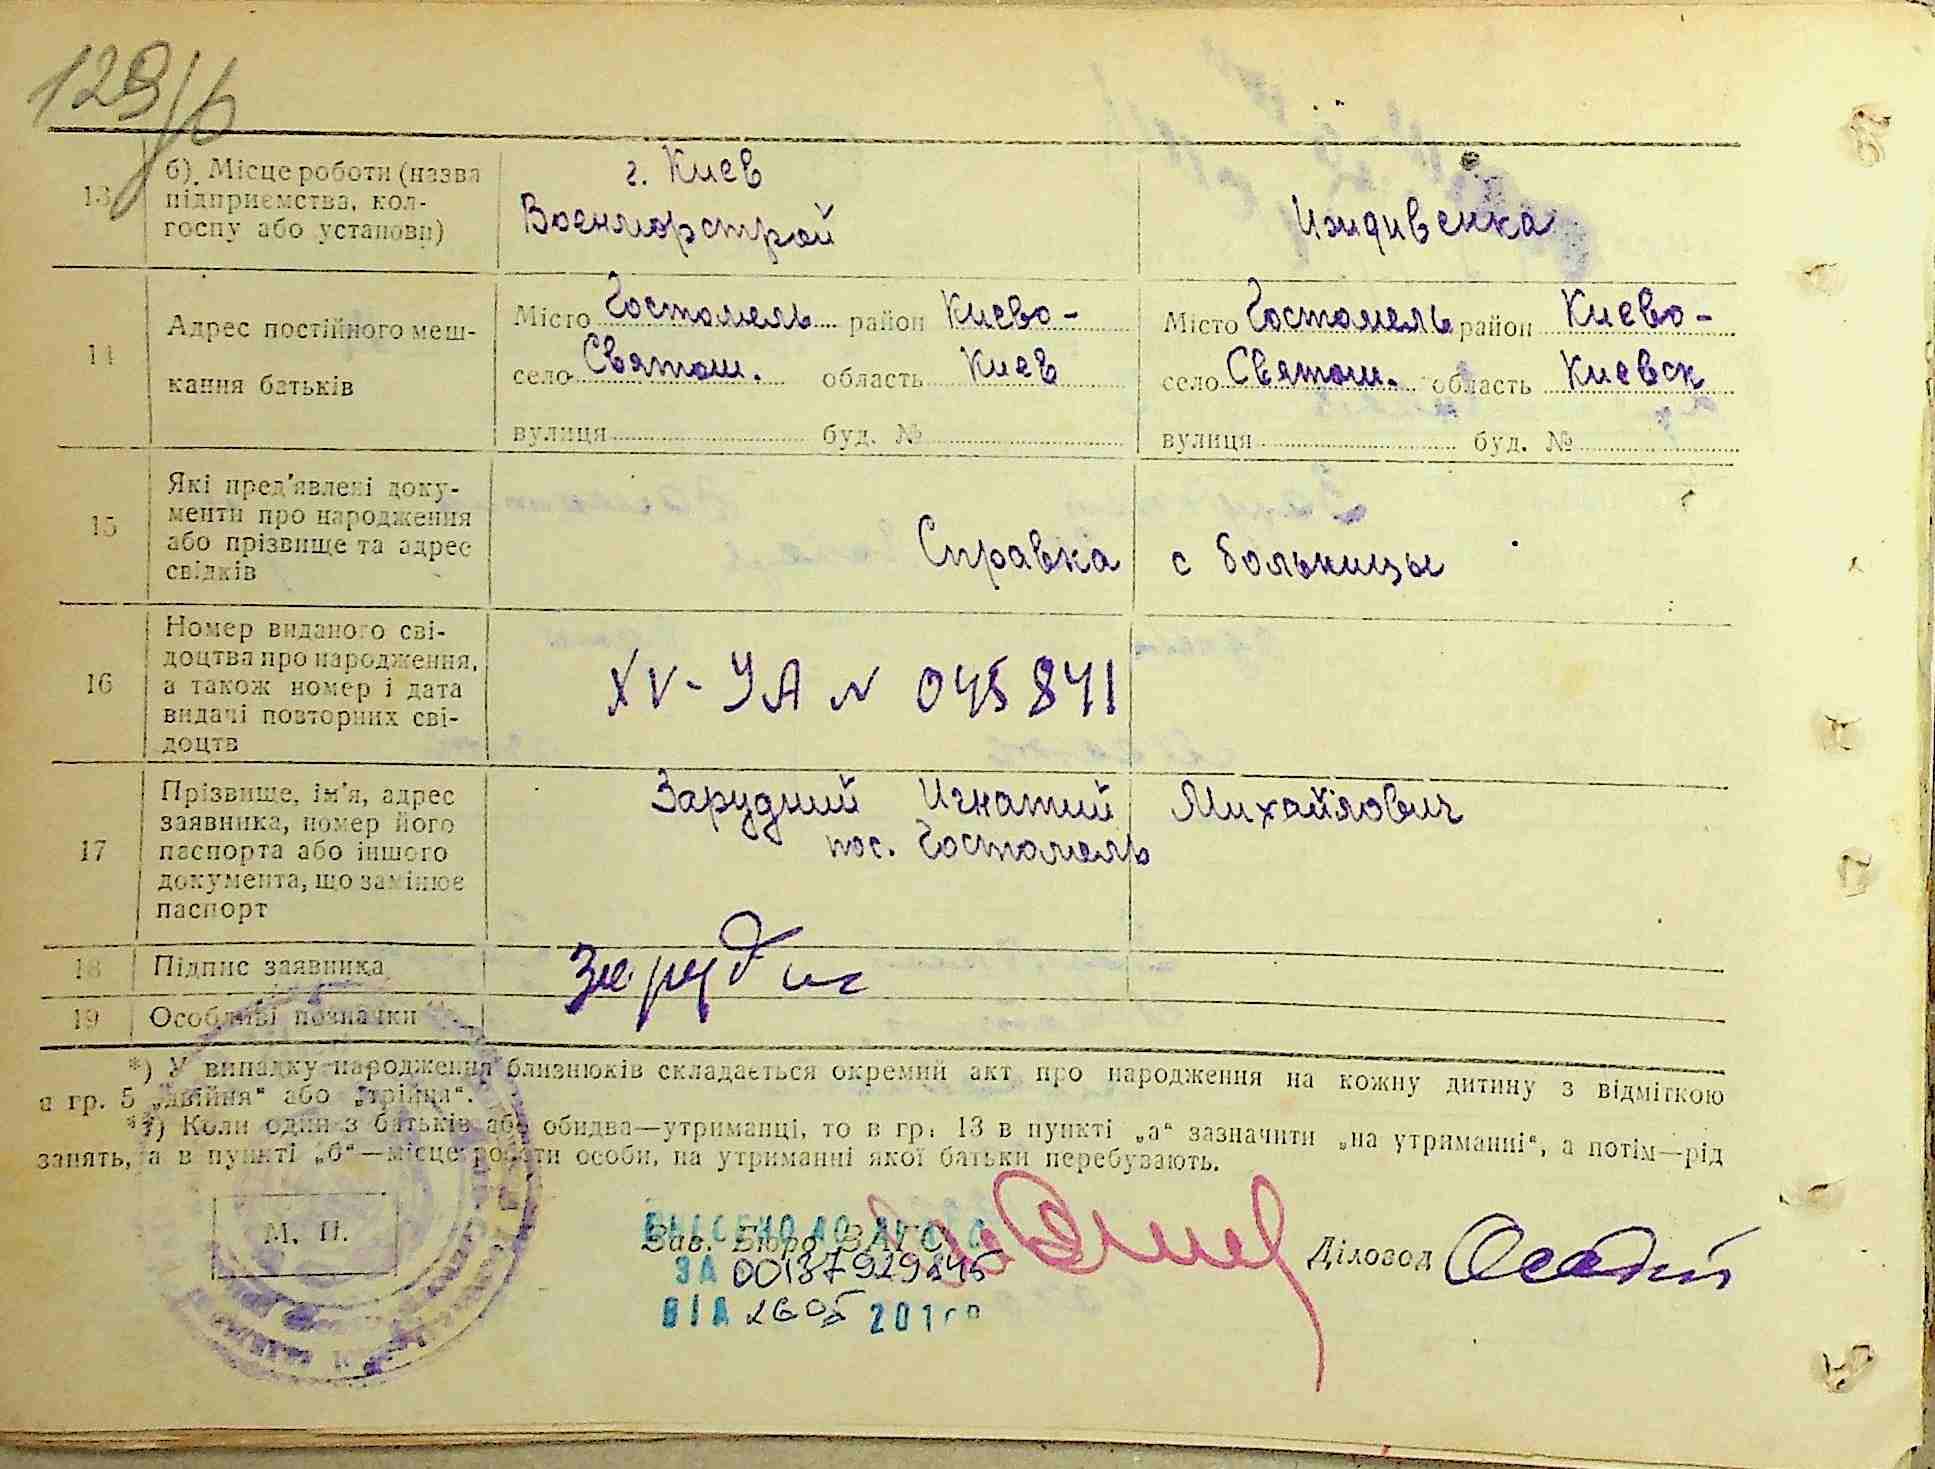 129/б
13
б). Місце роботи (назва підприємства, кол-
госпу або установи)
г. Киев
Военморстрой
Иждивенка
14
Адрес постійного меш-
кання батьків
Місто Гостомель район Киево-
село Святош. область Киев
вулиця буд. №
Місто Гостомель район Киево-
село Святош. область Киевск
вулиця буд. №
15
Які пред'явлені доку-
менти про народження
або прізвище та адрес
свідків
Справка с больницы
16
Номер виданого сві-
доцтва про народження,
а також номер і дата
видачі повторних сві-
доцтв
XV-УА № 045841
17
Прізвище, ім'я, адрес
заявника, номер його
паспорта або іншого
документа, що замінює
паспорт
Зарудний Игнатий Михайлович
пос. Гостомель
18
Підпис заявника
Зарудний
19
Особливі позначки
*) У випадку народження близнюків складається окремий акт про народження на кожну дитину з відміткою
в гр. 5 „двійня“ або „трійня“.
**) Коли один з батьків або обидва—утриманці, то в гр. 13 в пункті „а“ зазначити „на утриманні“, а потім—рід
занять, а в пункті „б“—місце роботи особи, на утриманні якої батьки перебувають.
М. П.
Зав. Бюро ЗАГС
ВНЕСЕНО ДО
ЗА 00137929845
ВІД 26 05 201
Діловод